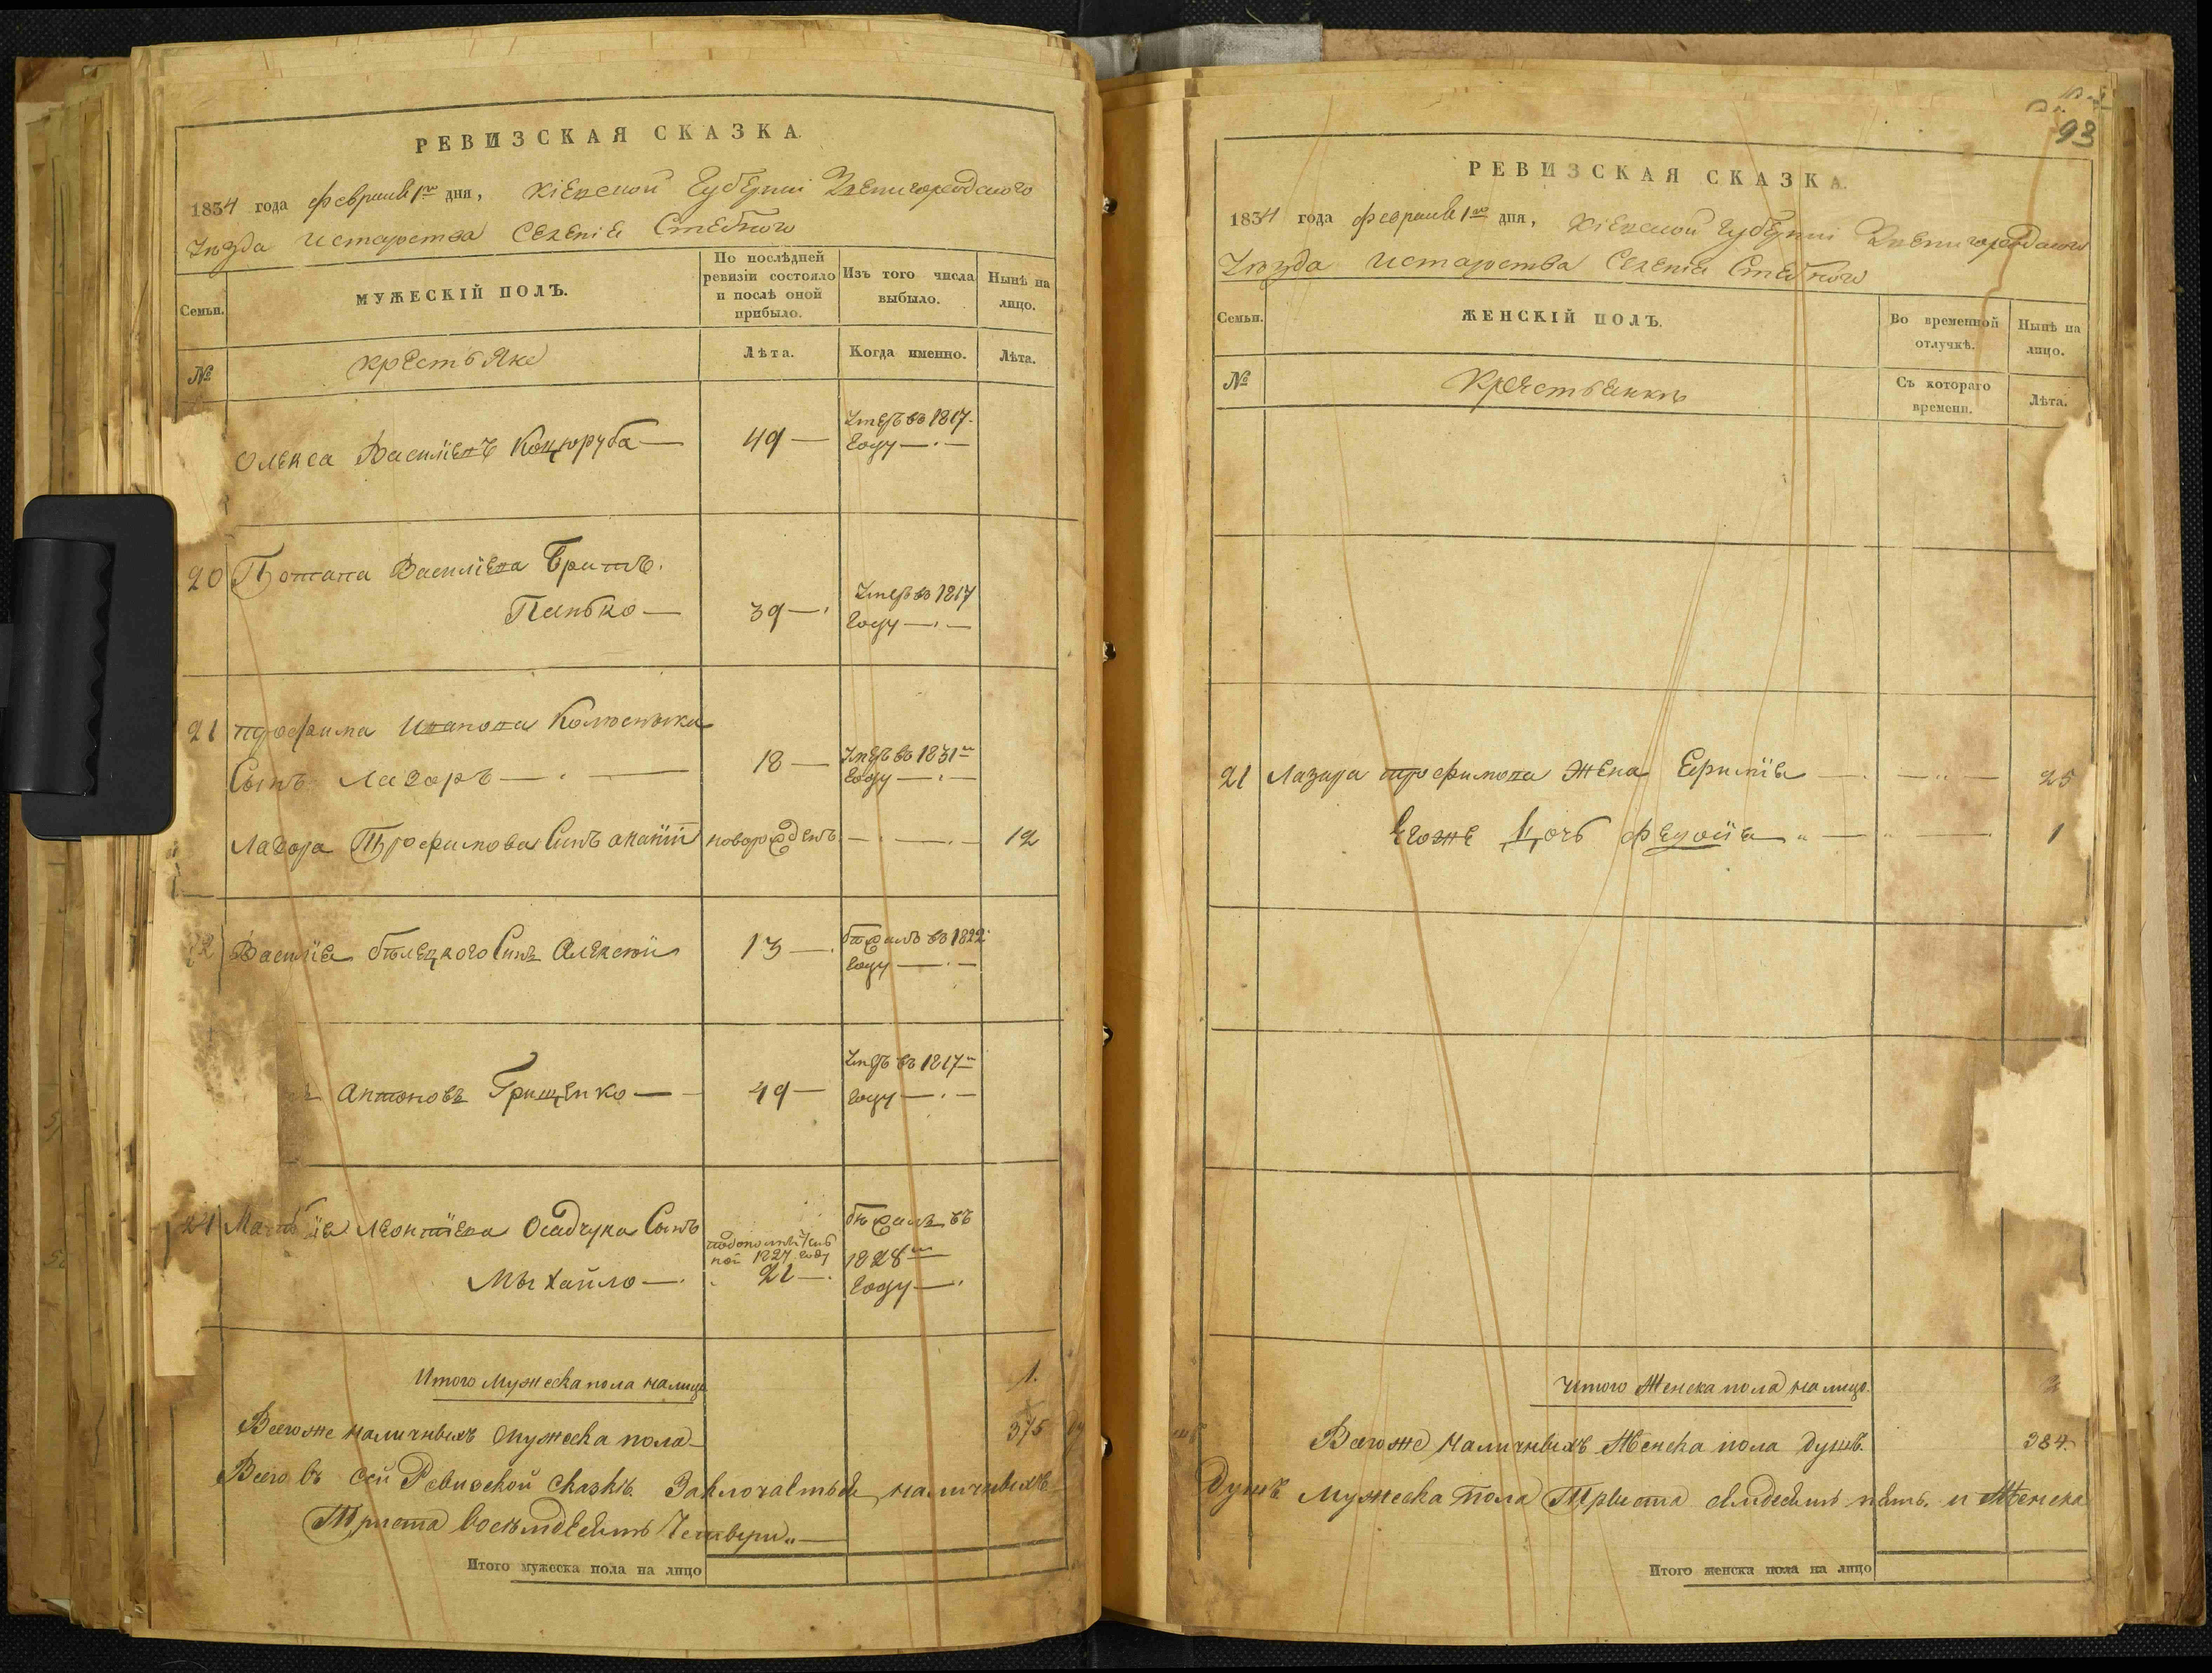 РЕВИЗСКАЯ СКАЗКА.
1834 года февраля 1го дня, Кіевской Губерніи Звенигородского
Уезда Истароства Селенія Стебного
Семьи.
МУЖЕСКІЙ ПОЛЪ.
По послѣдней ревизіи состояло и послѣ оной прибыло.
Изъ того числа выбыло.
Нынѣ на лицо.
№
крестьяне
Лѣта.
Когда именно.
Лѣта.
Олекса Василіевъ Коцюруба — 49 — Умеръ въ 1817
году
20 Потапа Василіева братъ
Панько — 39 — Умеръ въ 1817
году
21 трофима Иванова
Сынъ Лазоръ — 18 — Умеръ въ 1831м
году
Лазора Трофимова Синъ новорожденъ — 12
Василія белецкого Синъ Алексѣй 13 — бежалъ въ 1822
году
Антоновъ Грищенко — 49 — Умеръ въ 1817м
году
Леонтіева Осадчука Сынъ бежалъ въ
1827 году 1828м
Мыхайло — 21 — году
Итого Мужеска пола налицо 1.
Всегоже наличныхъ мужеска пола 375
Всего въ сей Ревиской сказкѣ Заключается наличныхъ
Триста восемдесятъ Четвери
Итого мужеска пола на лицо
93
РЕВИЗСКАЯ СКАЗКА.
1834 года февраля 1го дня, Кіевской Губерніи Звенигородского
Уезда Истароства Селенія Стебного
Семьи.
ЖЕНСКІЙ ПОЛЪ.
Во временной отлучкѣ.
Нынѣ на лицо.
№
Крестьянки
Съ котораго времени.
Лѣта.
21 Лазара трофимова Жена 25
Егоже Дочь 1
Итого Женска пола налицо. 2
Всегоже наличныхъ Женска пола душъ. 384.
Душъ Мужеска Пола Триста семдесятъ пять и Женска
Итого женска пола на лицо